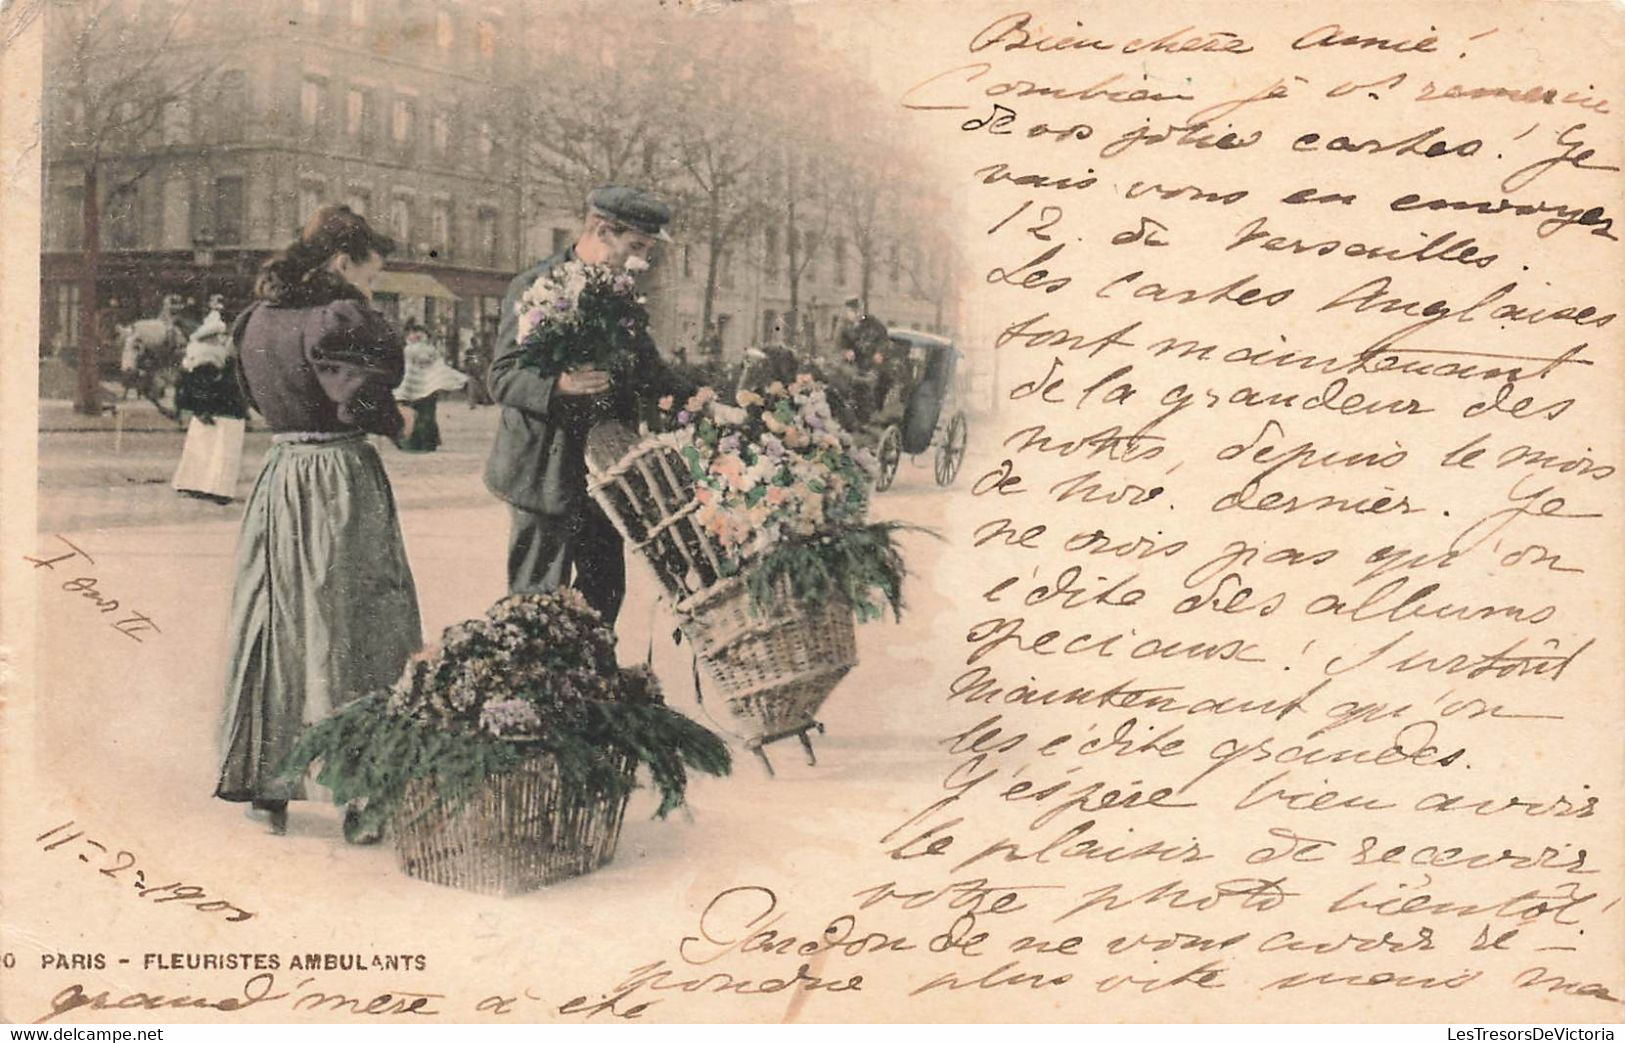 Bien chère Amie!
Combien je vs. remercie
de vos jolies cartes! Je
vais vous en envoyer
12 de Versailles.
Les Cartes Anglaises
sont maintenant
de la grandeur des
notres, depuis le mois
de Nov. dernier. Je
ne crois pas qu'on
édite des albums
speciaux! Surtout
Maintenant qu'on
les édite grandes.
J'éspére bien avoir
le plaisir de reçevoir
votre photo bientôt!
Pardon de ne vous avoir ré-
pondre plus vite mais ma
grand'mère a été
11-2-1901
00 PARIS - FLEURISTES AMBULANTS
LesTresorsDeVictoria